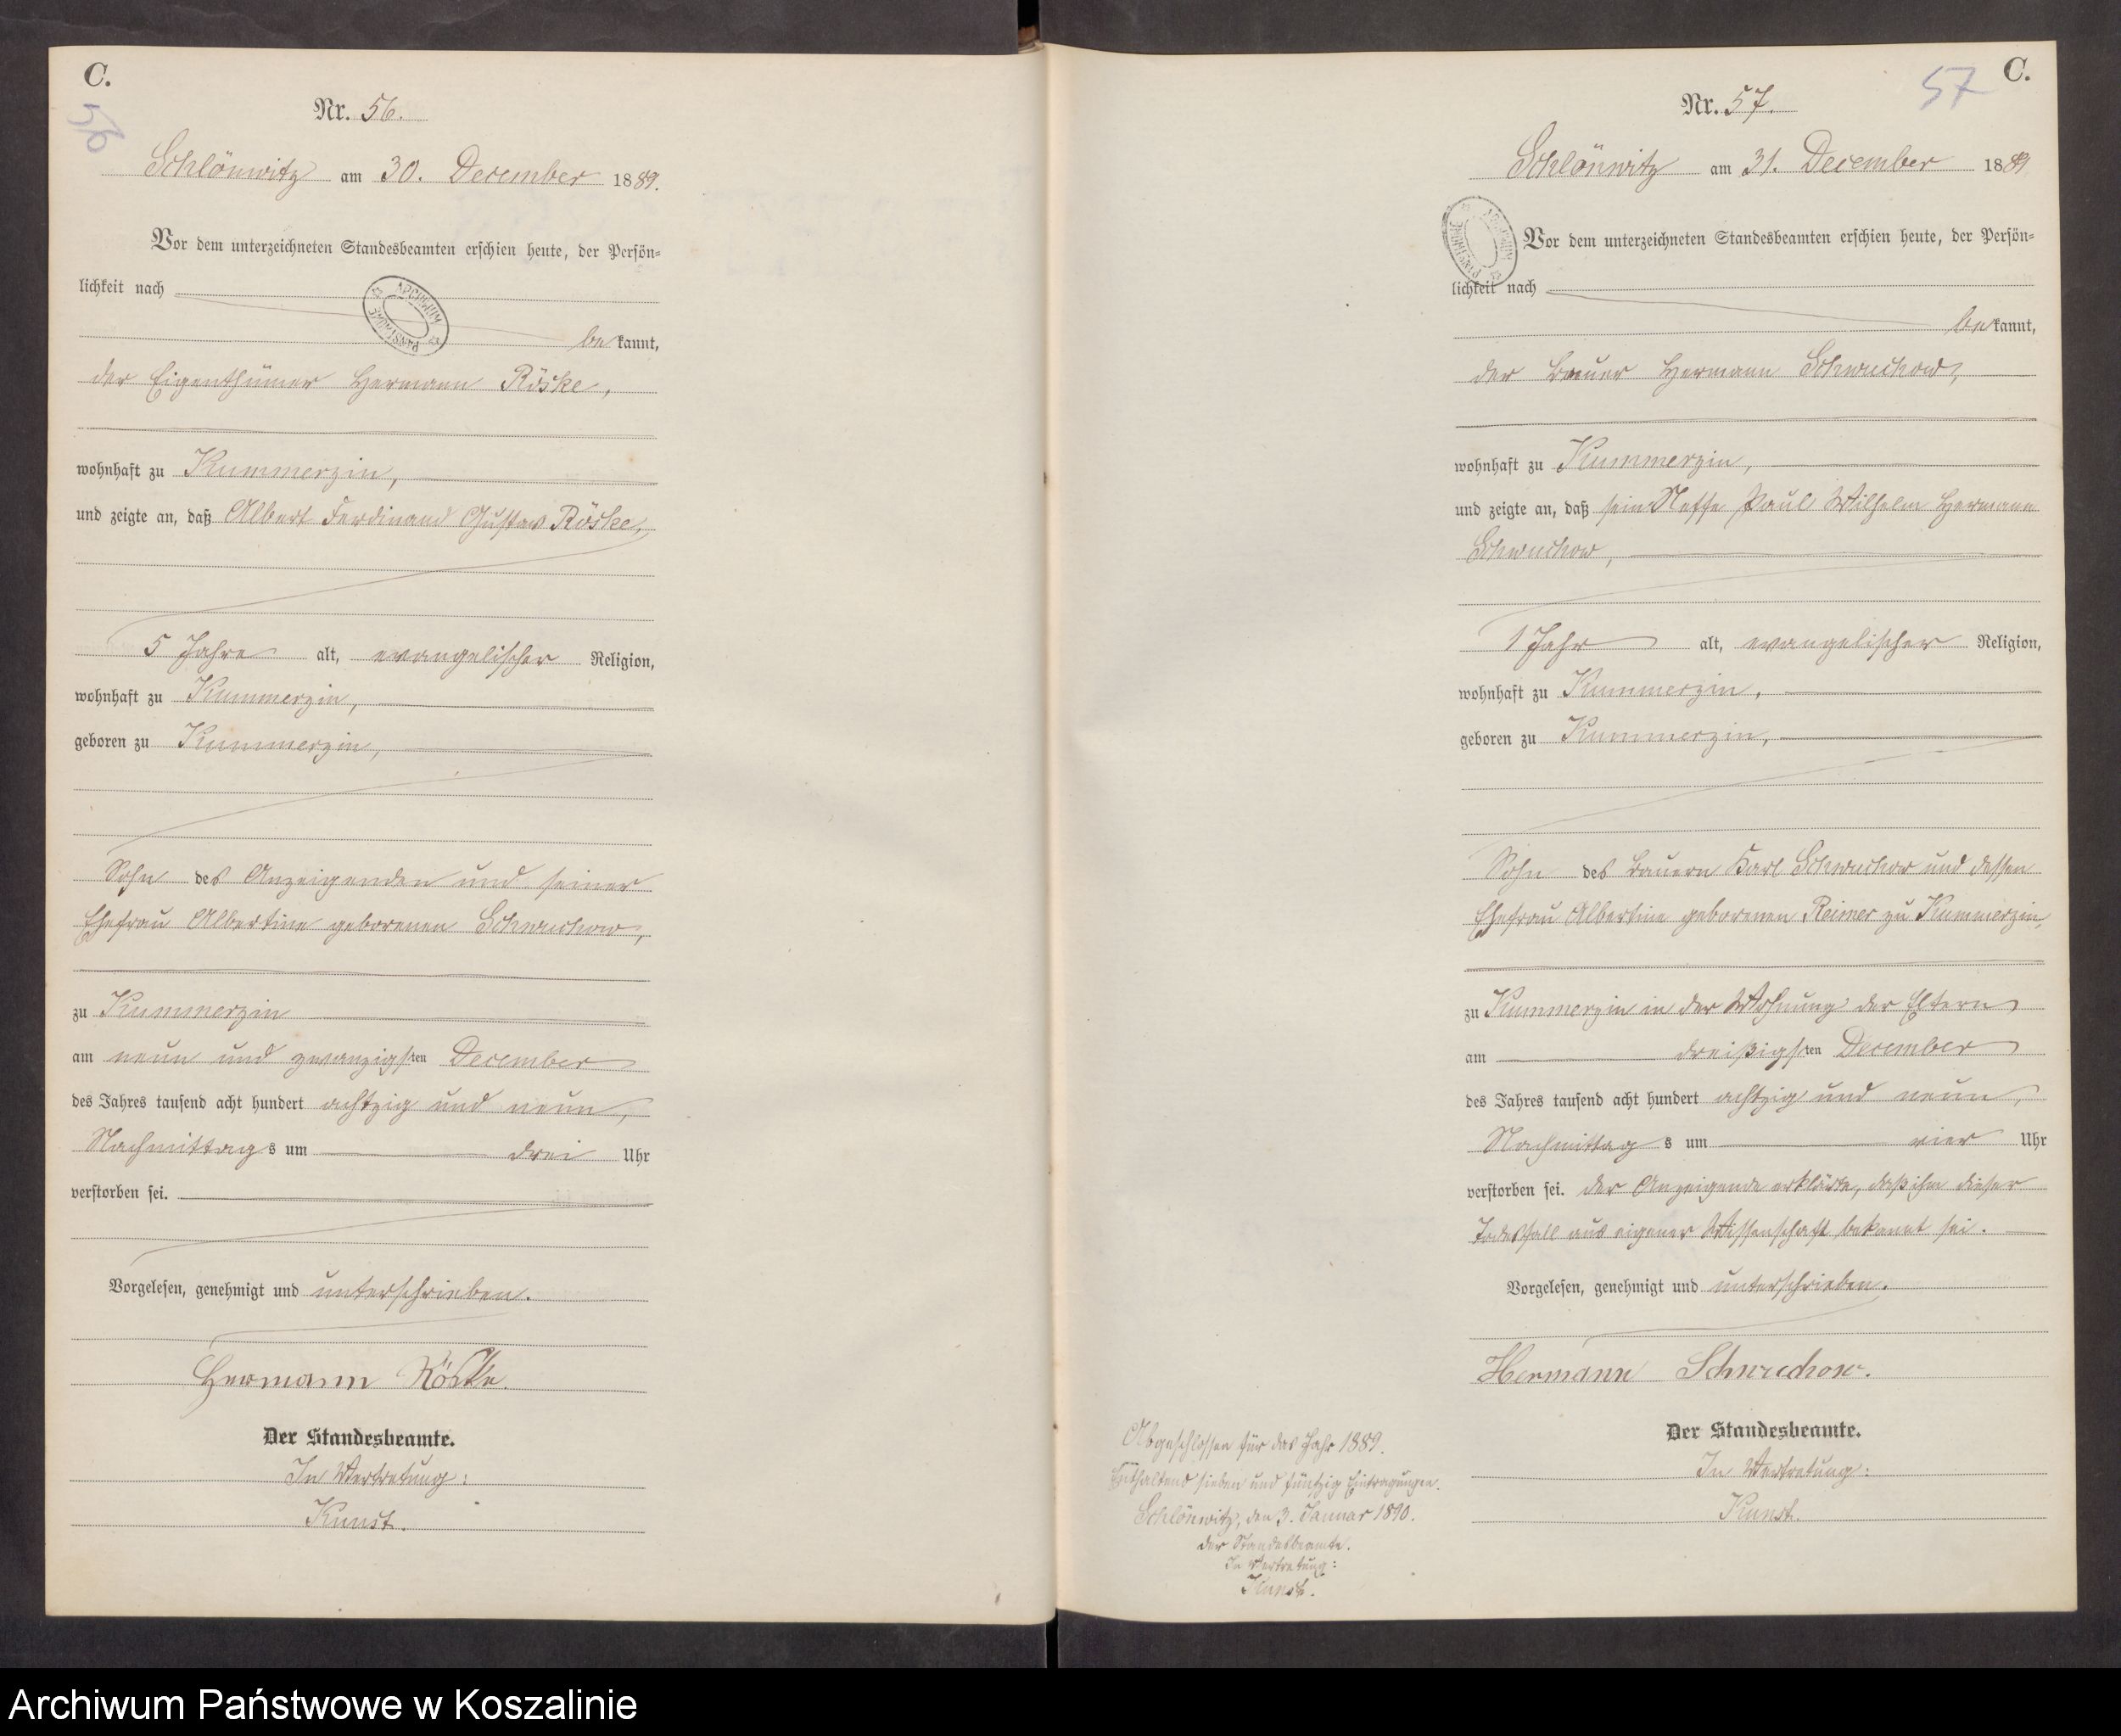 C.
56
Nr. 56.
Schlönwitz am 30. December 1889.
Vor dem unterzeichneten Standesbeamten erschien heute, der Persön-
lichkeit nach
ARCHIWUM PAŃSTWOWE
bekannt,
der Eigenthümer Hermann Röske,
wohnhaft zu Kummerzin,
und zeigte an, daß Albert Ferdinand Gustav Röske,
5 Jahre alt, evangelischer Religion,
wohnhaft zu Kummerzin,
geboren zu Kummerzin,
Sohn des Anzeigenden und seiner
Ehefrau Albertine geborenen Schwuchow,
zu Kummerzin
am neun und zwanzigsten December
des Jahres tausend acht hundert achtzig und neun,
Nachmittags um drei Uhr
verstorben sei.
Vorgelesen, genehmigt und unterschrieben.
Hermann Röske.
Der Standesbeamte.
In Vertretung:
Kunst.
C.
57
Nr. 57.
Schlönwitz am 31. December 1889
ARCHIWUM PAŃSTWOWE
Vor dem unterzeichneten Standesbeamten erschien heute, der Persön-
lichkeit nach
bekannt,
der Bauer Hermann Schwuchow,
wohnhaft zu Kummerzin,
und zeigte an, daß sein Neffe Paul Wilhelm Hermann
Schwuchow,
1 Jahr alt, evangelischer Religion,
wohnhaft zu Kummerzin,
geboren zu Kummerzin,
Sohn des Bauern Karl Schwuchow und dessen
Ehefrau Albertine geborenen Reimer zu Kummerzin,
zu Kummerzin in der Wohnung der Eltern
am dreißigsten December
des Jahres tausend acht hundert achtzig und neun,
Nachmittags um vier Uhr
verstorben sei. Der Anzeigende erklärte, daß ihm dieser
Todesfall aus eigener Wissenschaft bekannt sei.
Vorgelesen, genehmigt und unterschrieben.
Hermann Schwuchow.
Der Standesbeamte.
In Vertretung:
Kunst.
Abgeschlossen für das Jahr 1889.
Enthaltend sieben und fünfzig Eintragungen.
Schlönwitz, den 3. Januar 1890.
Der Standesbeamte.
In Vertretung:
Kunst.
Archiwum Państwowe w Koszalinie